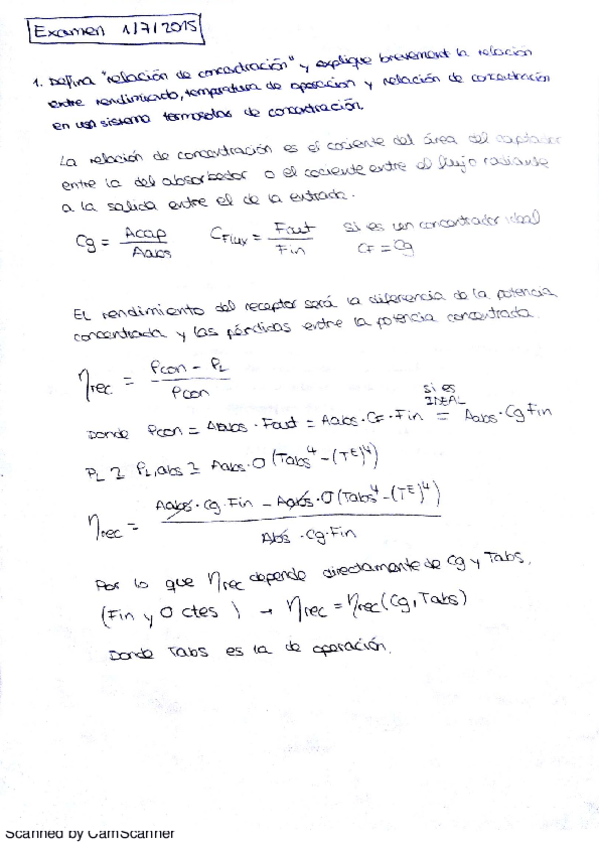 Examen 1/7/2015
1. Defina "relación de concentración" y explique brevement la relación
entre rendimiento, temperatura de operacion y relación de concentración
en un sistema termosolar de concentración.
La relación de concentración es el cociente del área del captador
entre la del absorbedor o el cociente entre el flujo radiante
a la salida entre el de la entrada.
Cg = Acap / Aabs   CFlux = Fout / Fin   si es un concentrador ideal
CF = Cg
El rendimiento del receptor será la diferencia de la potencia
concentrada y las pérdidas entre la potencia concentrada.
ηrec = (Pcon - PL) / Pcon
si es IDEAL
Donde Pcon = Aabs · Fout = Aabs · CF · Fin = Aabs · Cg Fin
PL ≥ PL,abs ≥ Aabs · σ (Tabs⁴ - (TE)⁴)
ηrec = (Aabs · Cg · Fin - Aabs · σ (Tabs⁴ - (TE)⁴)) / (Abs · Cg · Fin)
Por lo que ηrec depende directamente de Cg y Tabs,
(Fin y σ ctes) → ηrec = ηrec (Cg, Tabs)
Donde Tabs es la de operación.
Scanned by CamScanner